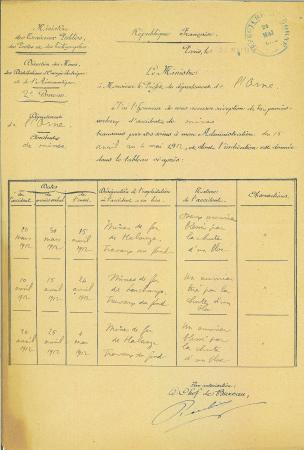 Ministère
des Travaux Publics,
des Postes et des Télégraphes
République Française.
Paris, le
Direction des Mines,
des Distributions d'Energie électrique
et de l'Aéronautique
2e Bureau
Département
de l'Orne
Accidents
de mines
Le Ministre
à Monsieur le Préfet du département de l'Orne
J'ai l'honneur de vous accuser réception des procès-
verbaux d'accidents de mines
transmis par vos soins à mon Administration, du 15
avril au 4 mai 1912, et dont l'indication est donnée
dans le tableau ci-après:
Dates
de l'accident
du procès-verbal
de l'envoi
Désignation de l'exploitation
où l'accident a eu lieu.
Nature
de l'accident.
Observations
20 mars 1912
30 mars 1912
15 avril 1912
Mines de fer
de Halouze
Travaux au fond.
Deux ouvriers
blessés par
la chute
d'un bloc
10 avril 1912
15 avril 1912
24 avril 1912
Mines de fer
de Larchamp
Travaux du fond
Un ouvrier
tué par la
chute d'un
bloc
20 avril 1912
25 avril 1912
4 mai 1912
Mines de fer
de Halouze
Travaux du fond.
Un ouvrier
blessé par
la chute
d'un bloc
Par autorisation:
Le Chef de Bureau,